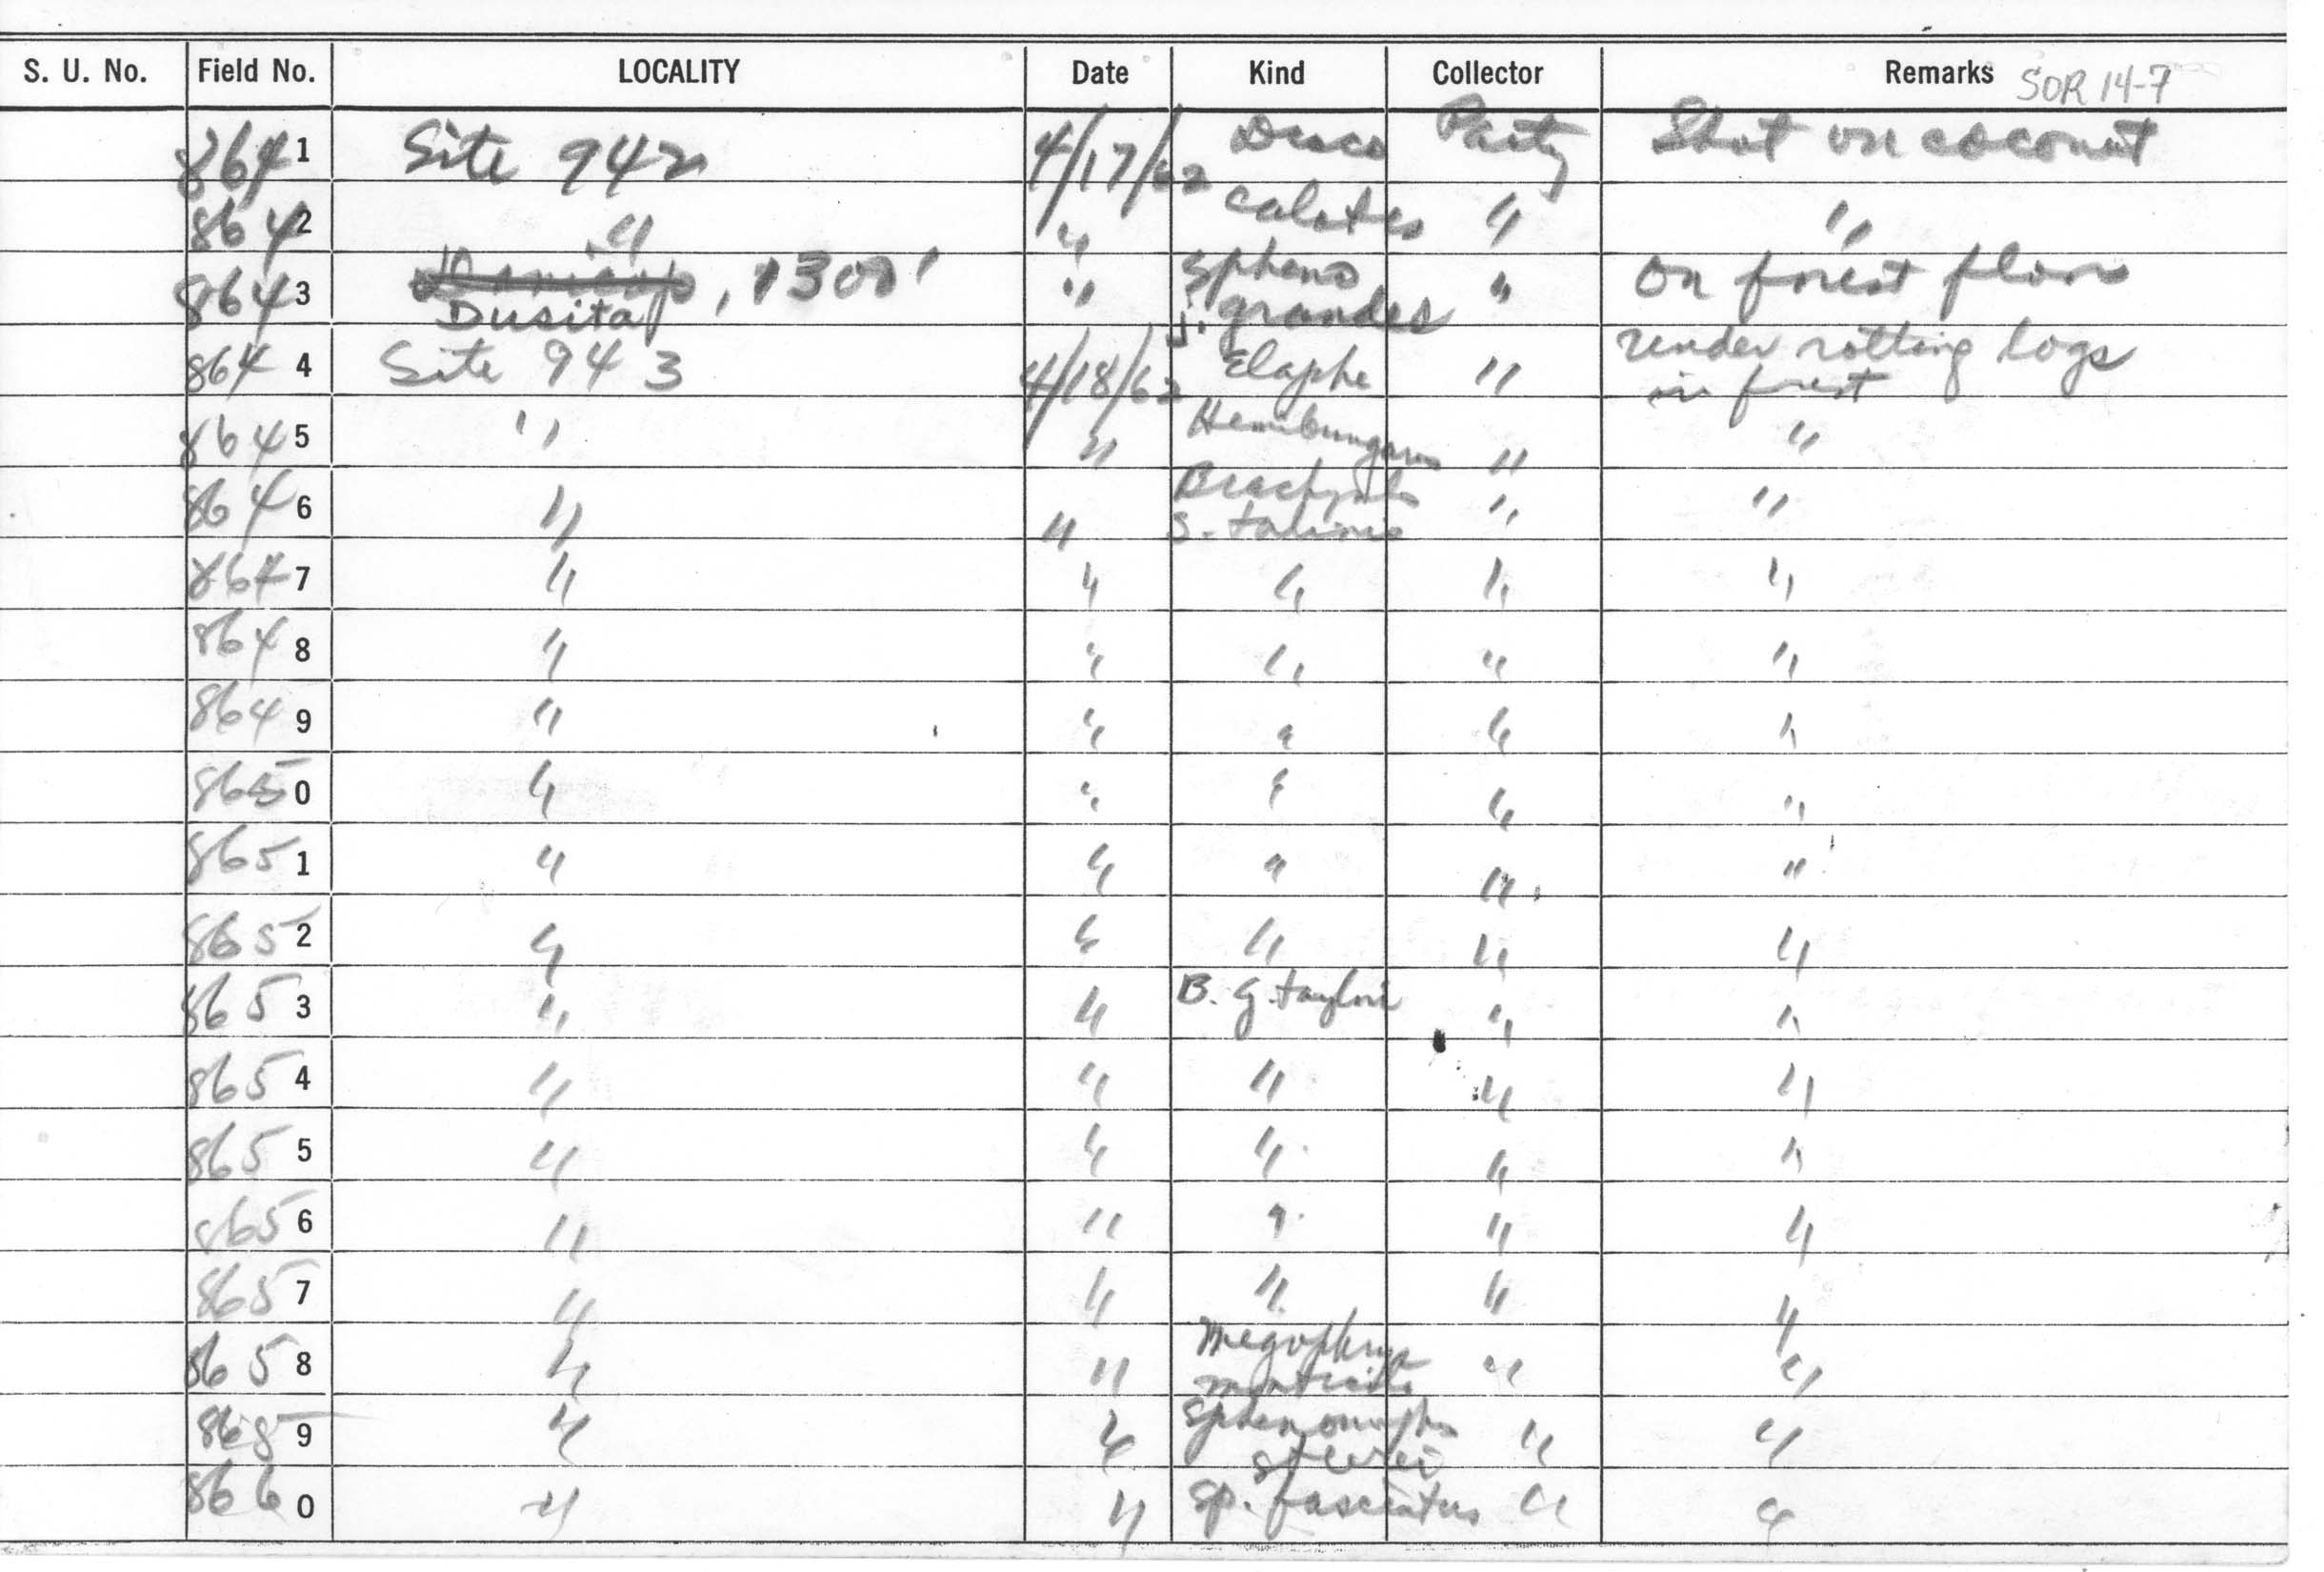 S. U. No. Field No. LOCALITY Date Kind Collector Remarks SOR 14-7
8641 Site 942 4/17/62 Draco Party Shot on coconut
8642 " " Calotes " "
8643 , 1300' " Spheno " On forest floor
Dusita j. grandes
8644 Site 943 4/18/62 Elaphe " under rotting logs
in forest
8645 " " Hemibungarus " "
8646 " " Brachymeles " "
S. talinis
8647 " " " " "
8648 " " " " "
8649 " " " " "
8650 " " " " "
8651 " " " " "
8652 " " " " "
8653 " " B. g. taylori " "
8654 " " " " "
8655 " " " " "
8656 " " " " "
8657 " " " " "
8658 " " Megophrys " "
monticola
8659 " " Sphenomorphus " "
steerei
8660 " " Sp. fasciatus " "